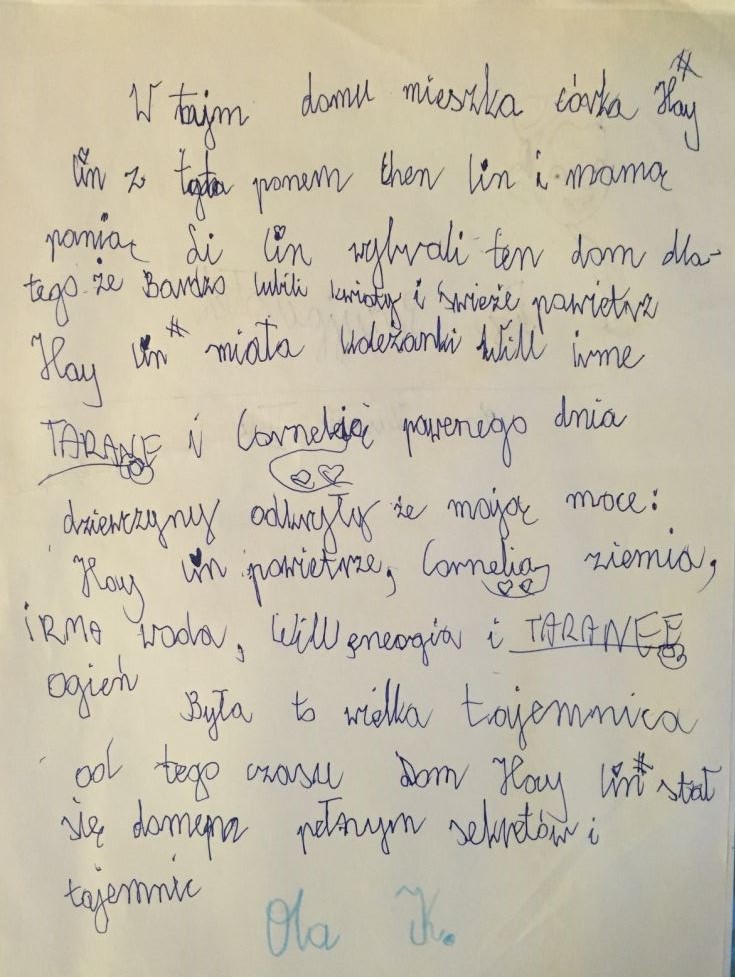 W tajm domu mieszka córka Hay
lin z tatą panem chen lin i mamą
panią Li lin wybrali ten dom dla-
tego że Bardzo lubili kwiaty i świeże powietrz
Hay lin miała koleżanki Will irme
TARANE i Cornelię pewnego dnia
dziewczyny odkryły że mają moce:
Hay lin powietrze, Cornelia ziemia,
iRMA woda, Will energia i TARANEE
ogień Była to wielka tajemnica
od tego czasu dom Hay lin stał
się domem pełnym sekretów i
tajemnic
Ola K.